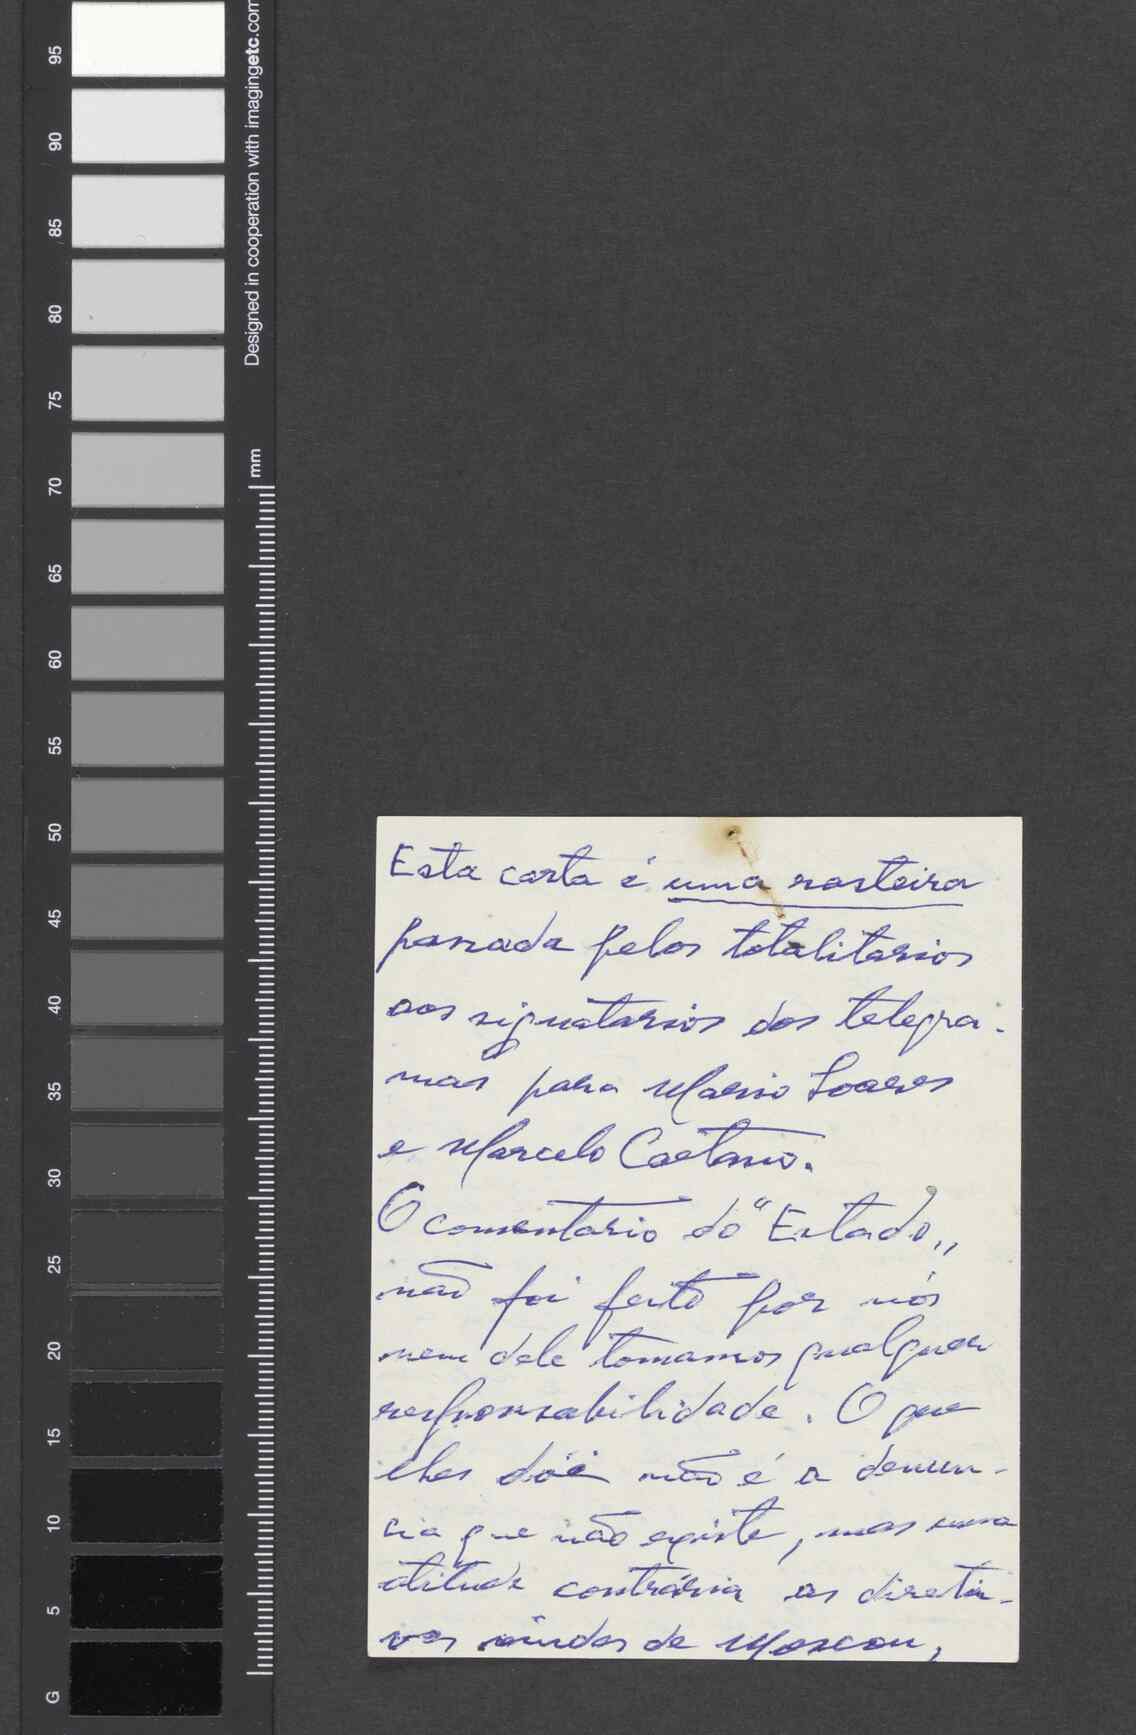 95
90
85
80
75
70
65
60
55
50
45
40
35
30
25
20
15
10
5
G
Designed in cooperation with imagingetc.com
mm
Esta carta é uma rasteira
passada pelos totalitarios
aos signatarios dos telegra-
mas para Mario Soares
e Marcelo Caetano.
O comentario do "Estado„
não foi feito por nós
nem dele tomamos qualquer
responsabilidade. O que
lhes dói não é a denun-
cia que não existe, mas uma
atitude contrária as direti-
vas vindas de Moscou,